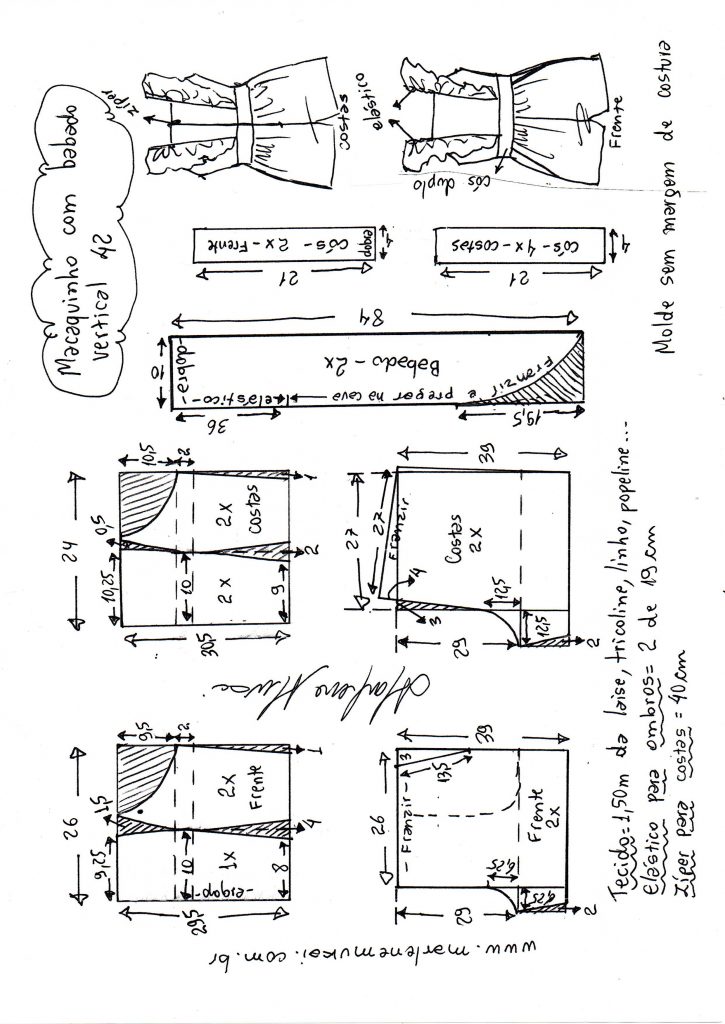 Macaquinho com babado
vertical 42
zíper
costas
elástico
cós duplo
Frente
Molde sem margem de costura
cós - 2x - Frente
dobra
4
21
cós - 4x - costas
4
21
84
10
-dobra-
Babado - 2x
-elástico-
pregar na cava
e
Franzir
36
19,5
24
0,5
10,5
2
10,25
10
2x
2x
costas
9
2
1
30,5
39
27
27
Franzir
4
3
Costas
2x
12,5
12,5
29
2
26
1,5
9,5
2
9,25
10
2x
Frente
1x
-dobra-
8
4
1
29,5
39
26
- Franzir -
3
13,5
Frente
2x
6,25
6,25
29
2
Marlene Mukai
www.marlenemukai.com.br
Tecido=1,50m da laise, tricoline, linho, popeline...
elástico para ombros= 2 de 19 cm
zíper para costas = 40 cm